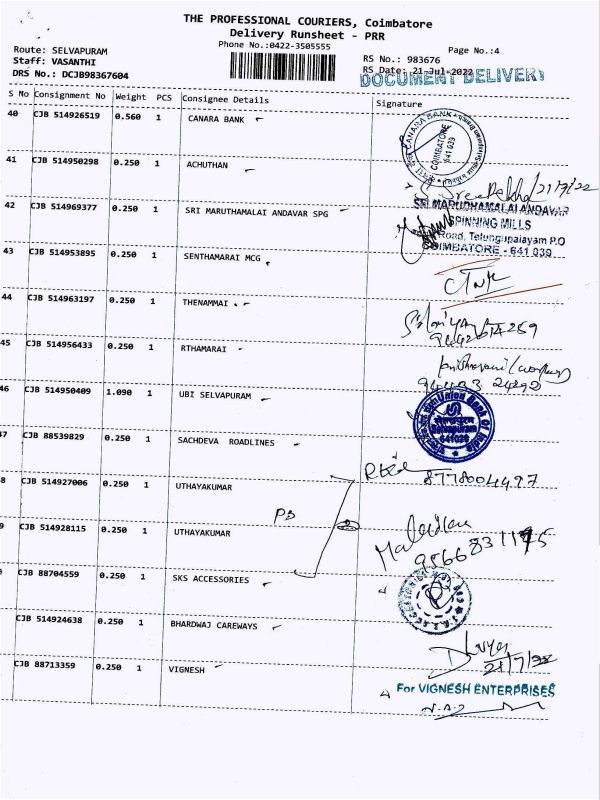 THE PROFESSIONAL COURIERS, Coimbatore
Delivery Runsheet - PRR
Phone No.:0422-3505555
Page No.:4
Route: SELVAPURAM
Staff: VASANTHI
DRS No.: DCJB98367604
RS No.: 983676
RS Date: 21-Jul-2022
DOCUMENT DELIVERY
S No Consignment No Weight PCS Consignee Details Signature
40 CJB 514926519 0.560 1 CANARA BANK
CANARA BANK
COIMBATORE
641 039
41 CJB 514950298 0.250 1 ACHUTHAN
21/7/22
42 CJB 514969377 0.250 1 SRI MARUTHAMALAI ANDAVAR SPG
SRI MARUDHAMALAI ANDAVAR
SPINNING MILLS
Road, Telungupalayam P.O
COIMBATORE - 641 039
43 CJB 514953895 0.250 1 SENTHAMARAI MCG
44 CJB 514963197 0.250 1 THENNAMMI
45 CJB 514956433 0.250 1 RTHAMARAI
94433 24292
46 CJB 514950409 1.090 1 UBI SELVAPURAM
Union Bank Of India
Selvapuram
641026
47 CJB 88539829 0.250 1 SACHDEVA ROADLINES
8778004497
8 CJB 514927006 0.250 1 UTHAYAKUMAR
PB
9 CJB 514928115 0.250 1 UTHAYAKUMAR
CJB 88704559 0.250 1 SKS ACCESSORIES
CJB 514924638 0.250 1 BHARDWAJ CAREWAYS
21/7/22
CJB 88713359 0.250 1 VIGNESH
For VIGNESH ENTERPRISES